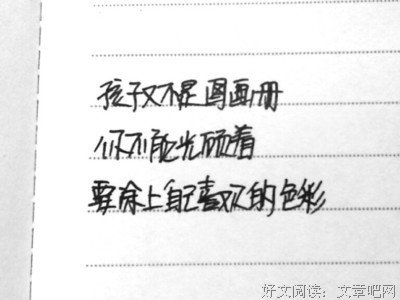 孩子又不是图画册
你不能光顾着
要涂上自己喜欢的色彩
好文阅读：文章吧网